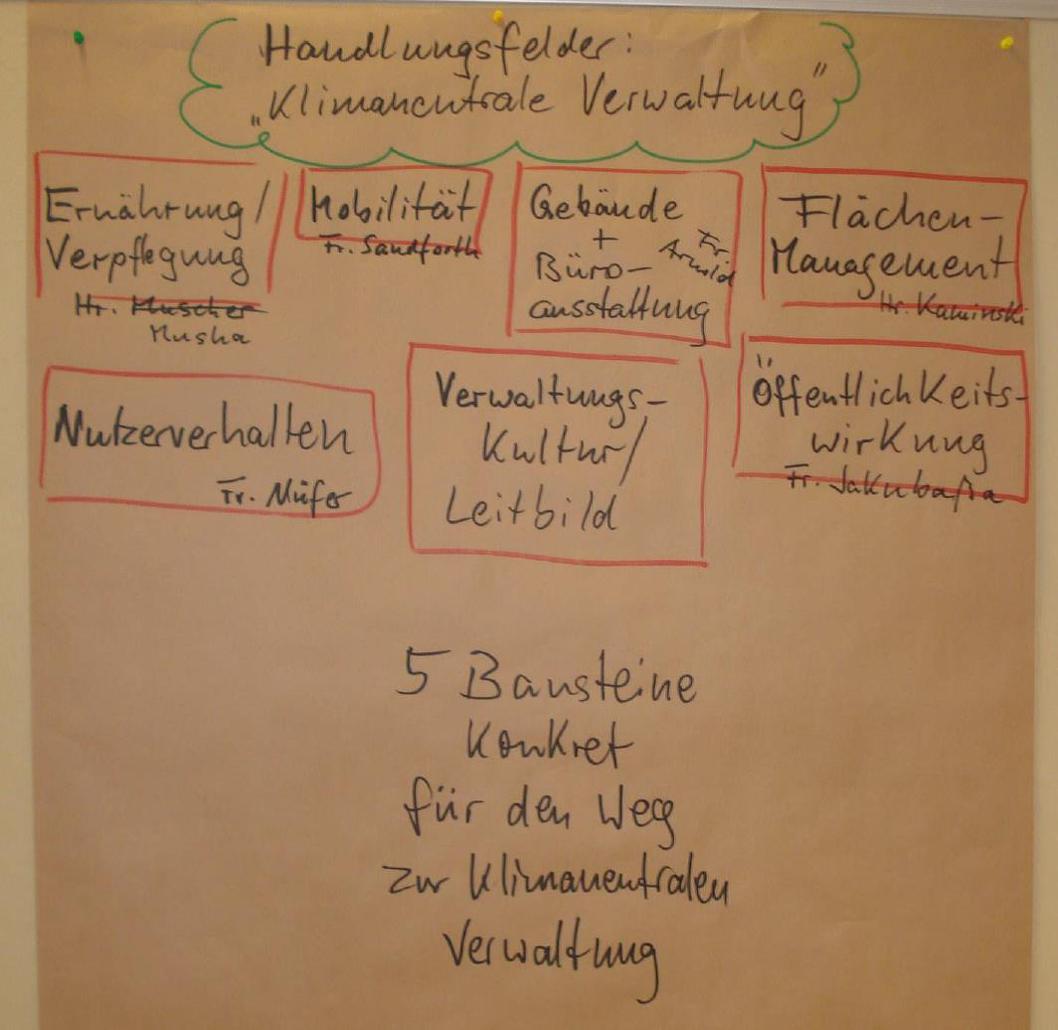 Handlungsfelder:
„Klimaneutrale Verwaltung"
Ernährung/
Verpflegung
Hr. Muscher
Musha
Mobilität
Fr. Sandforth
Gebände
+
Büro-
ausstattung
Fr.
Arnold
Flächen-
Management
Hr. Kaminski
Nutzerverhalten
Fr. Müfer
Verwaltungs-
Kultur/
Leitbild
Öffentlichkeits-
wirkung
Fr.
5 Bausteine
Konkret
für den Weg
zur Klimaneutralen
Verwaltung